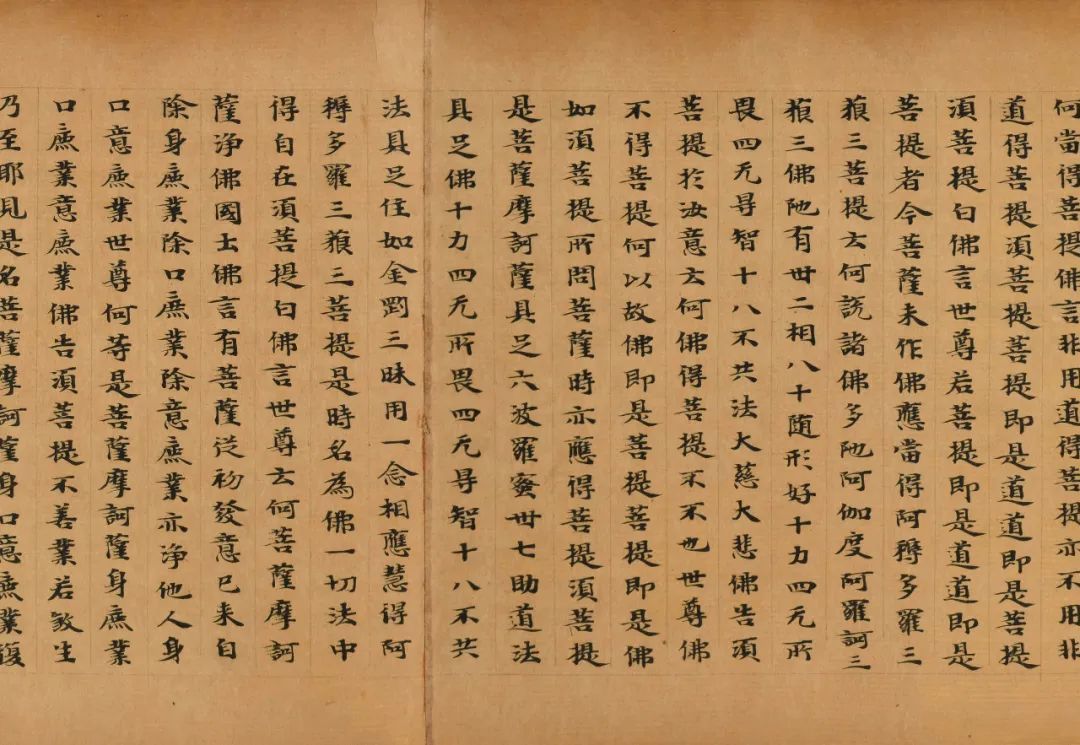 何當得菩提佛言非用道得菩提亦不用非
道得菩提須菩提菩提即是道道即是菩提
須菩提白佛言世尊若菩提即是道道即是
菩提者今菩薩未作佛應當得阿耨多羅三
藐三菩提云何說諸佛多陁阿伽度阿羅訶三
藐三佛陁有卅二相八十随形好十力四无所
畏四无㝵智十八不共法大慈大悲佛告須
菩提於汝意云何佛得菩提不不也世尊佛
不得菩提何以故佛即是菩提菩提即是佛
如須菩提所問菩薩時亦應得菩提須菩提
是菩薩摩訶薩具足六波羅蜜卅七助道法
具足佛十力四无所畏四无㝵智十八不共
法具足住如金剛三昧用一念相應慧得阿
耨多羅三藐三菩提是時名為佛一切法中
得自在須菩提白佛言世尊云何菩薩摩訶
薩淨佛國土佛言有菩薩從初發意已来自
除身麁業除口麁業除意麁業亦淨他人身
口意麁業世尊何等是菩薩摩訶薩身麁業
口麁業意麁業佛告須菩提不善業若煞生
乃至耶見是名菩薩摩訶薩身口意麁業復